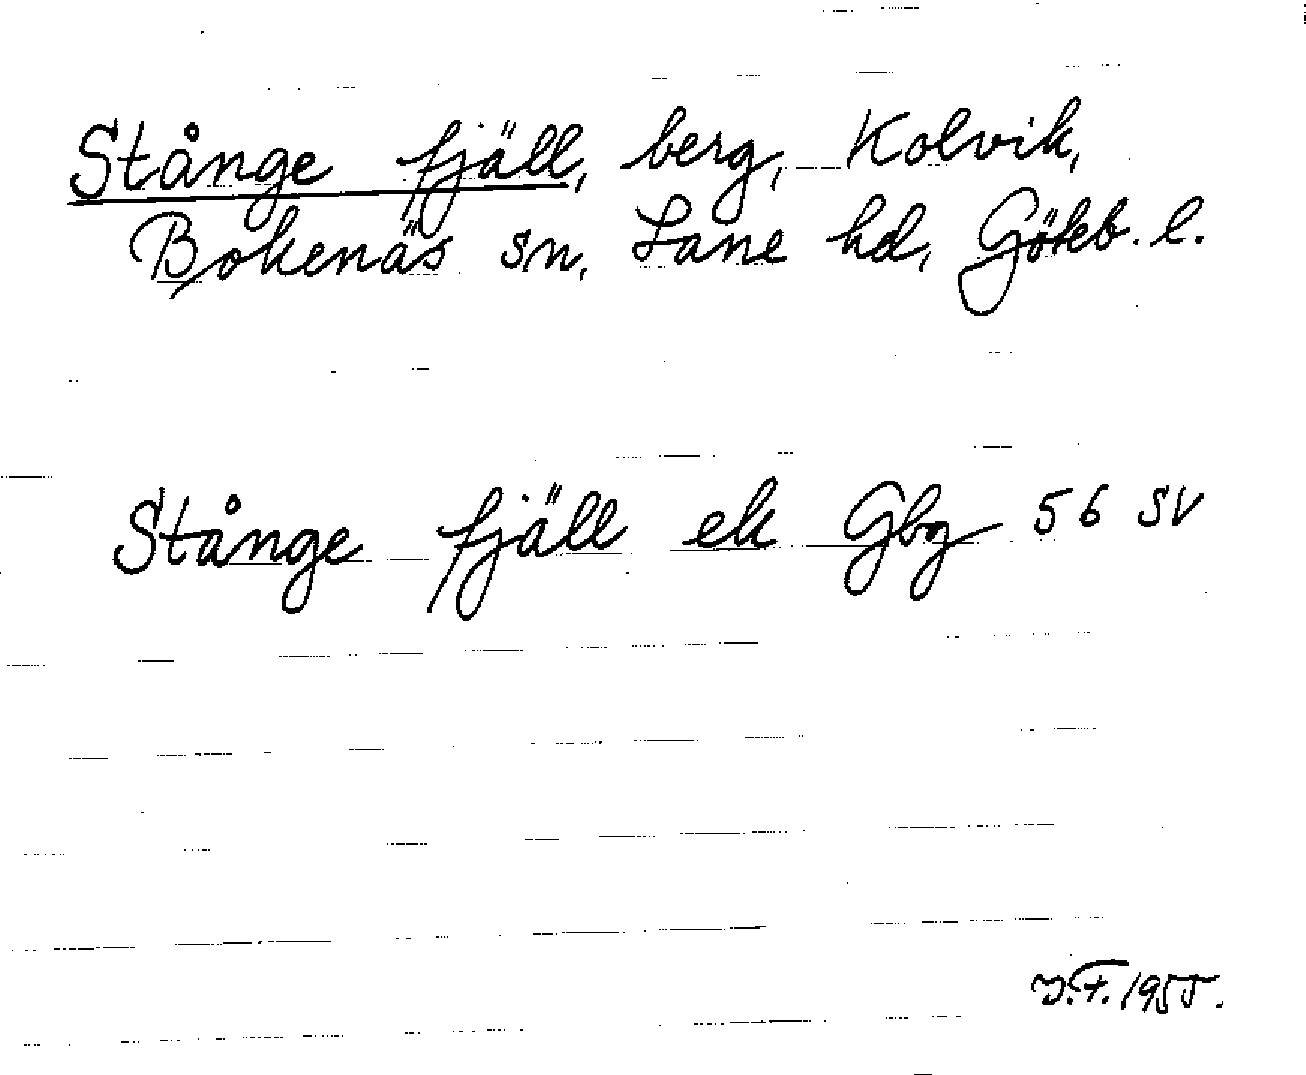 Stånge fjäll, berg, Kolvik,
Bokenäs sn, Lane hd, Göteb. l.
Stånge fjäll ek Gbg 56 SV
J.F. 1955.